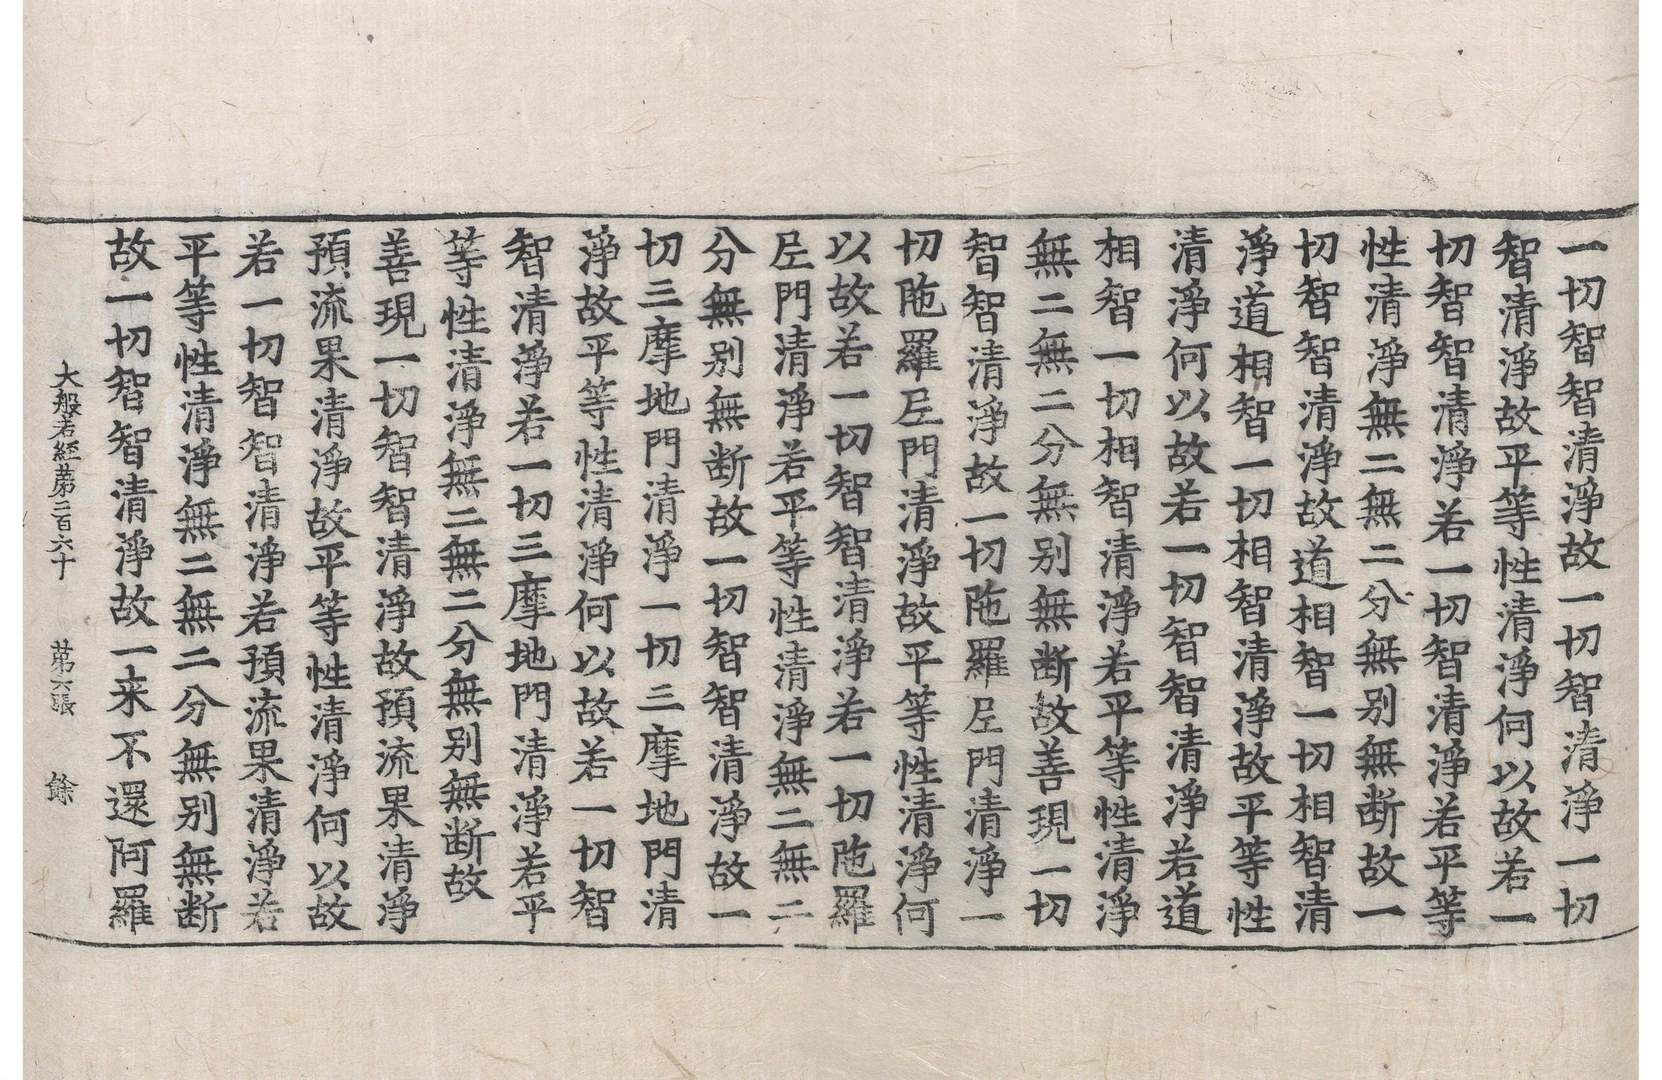 一切智智清淨故一切智清淨一切
智清淨故平等性清淨何以故若一
切智智清淨若一切智清淨若平等
性清淨無二無二分無别無断故一
切智智清淨故道相智一切相智清
淨道相智一切相智清淨故平等性
清淨何以故若一切智智清淨若道
相智一切相智清淨若平等性清淨
無二無二分無别無断故善現一切
智智清淨故一切陁羅尼門清淨一
切陁羅尼門清淨故平等性清淨何
以故若一切智智清淨若一切陁羅
尼門清淨若平等性清淨無二無二
分無别無断故一切智智清淨故一
切三摩地門清淨一切三摩地門清
淨故平等性清淨何以故若一切智
智清淨若一切三摩地門清淨若平
等性清淨無二無二分無别無断故
善現一切智智清淨故預流果清淨
預流果清淨故平等性清淨何以故
若一切智智清淨若預流果清淨若
平等性清淨無二無二分無别無断
故一切智智清淨故一来不還阿羅
大般若経第二百六十 第六張 餘